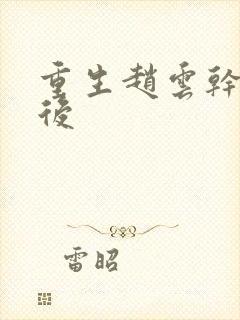 重生趙雲幹
後
雷昭